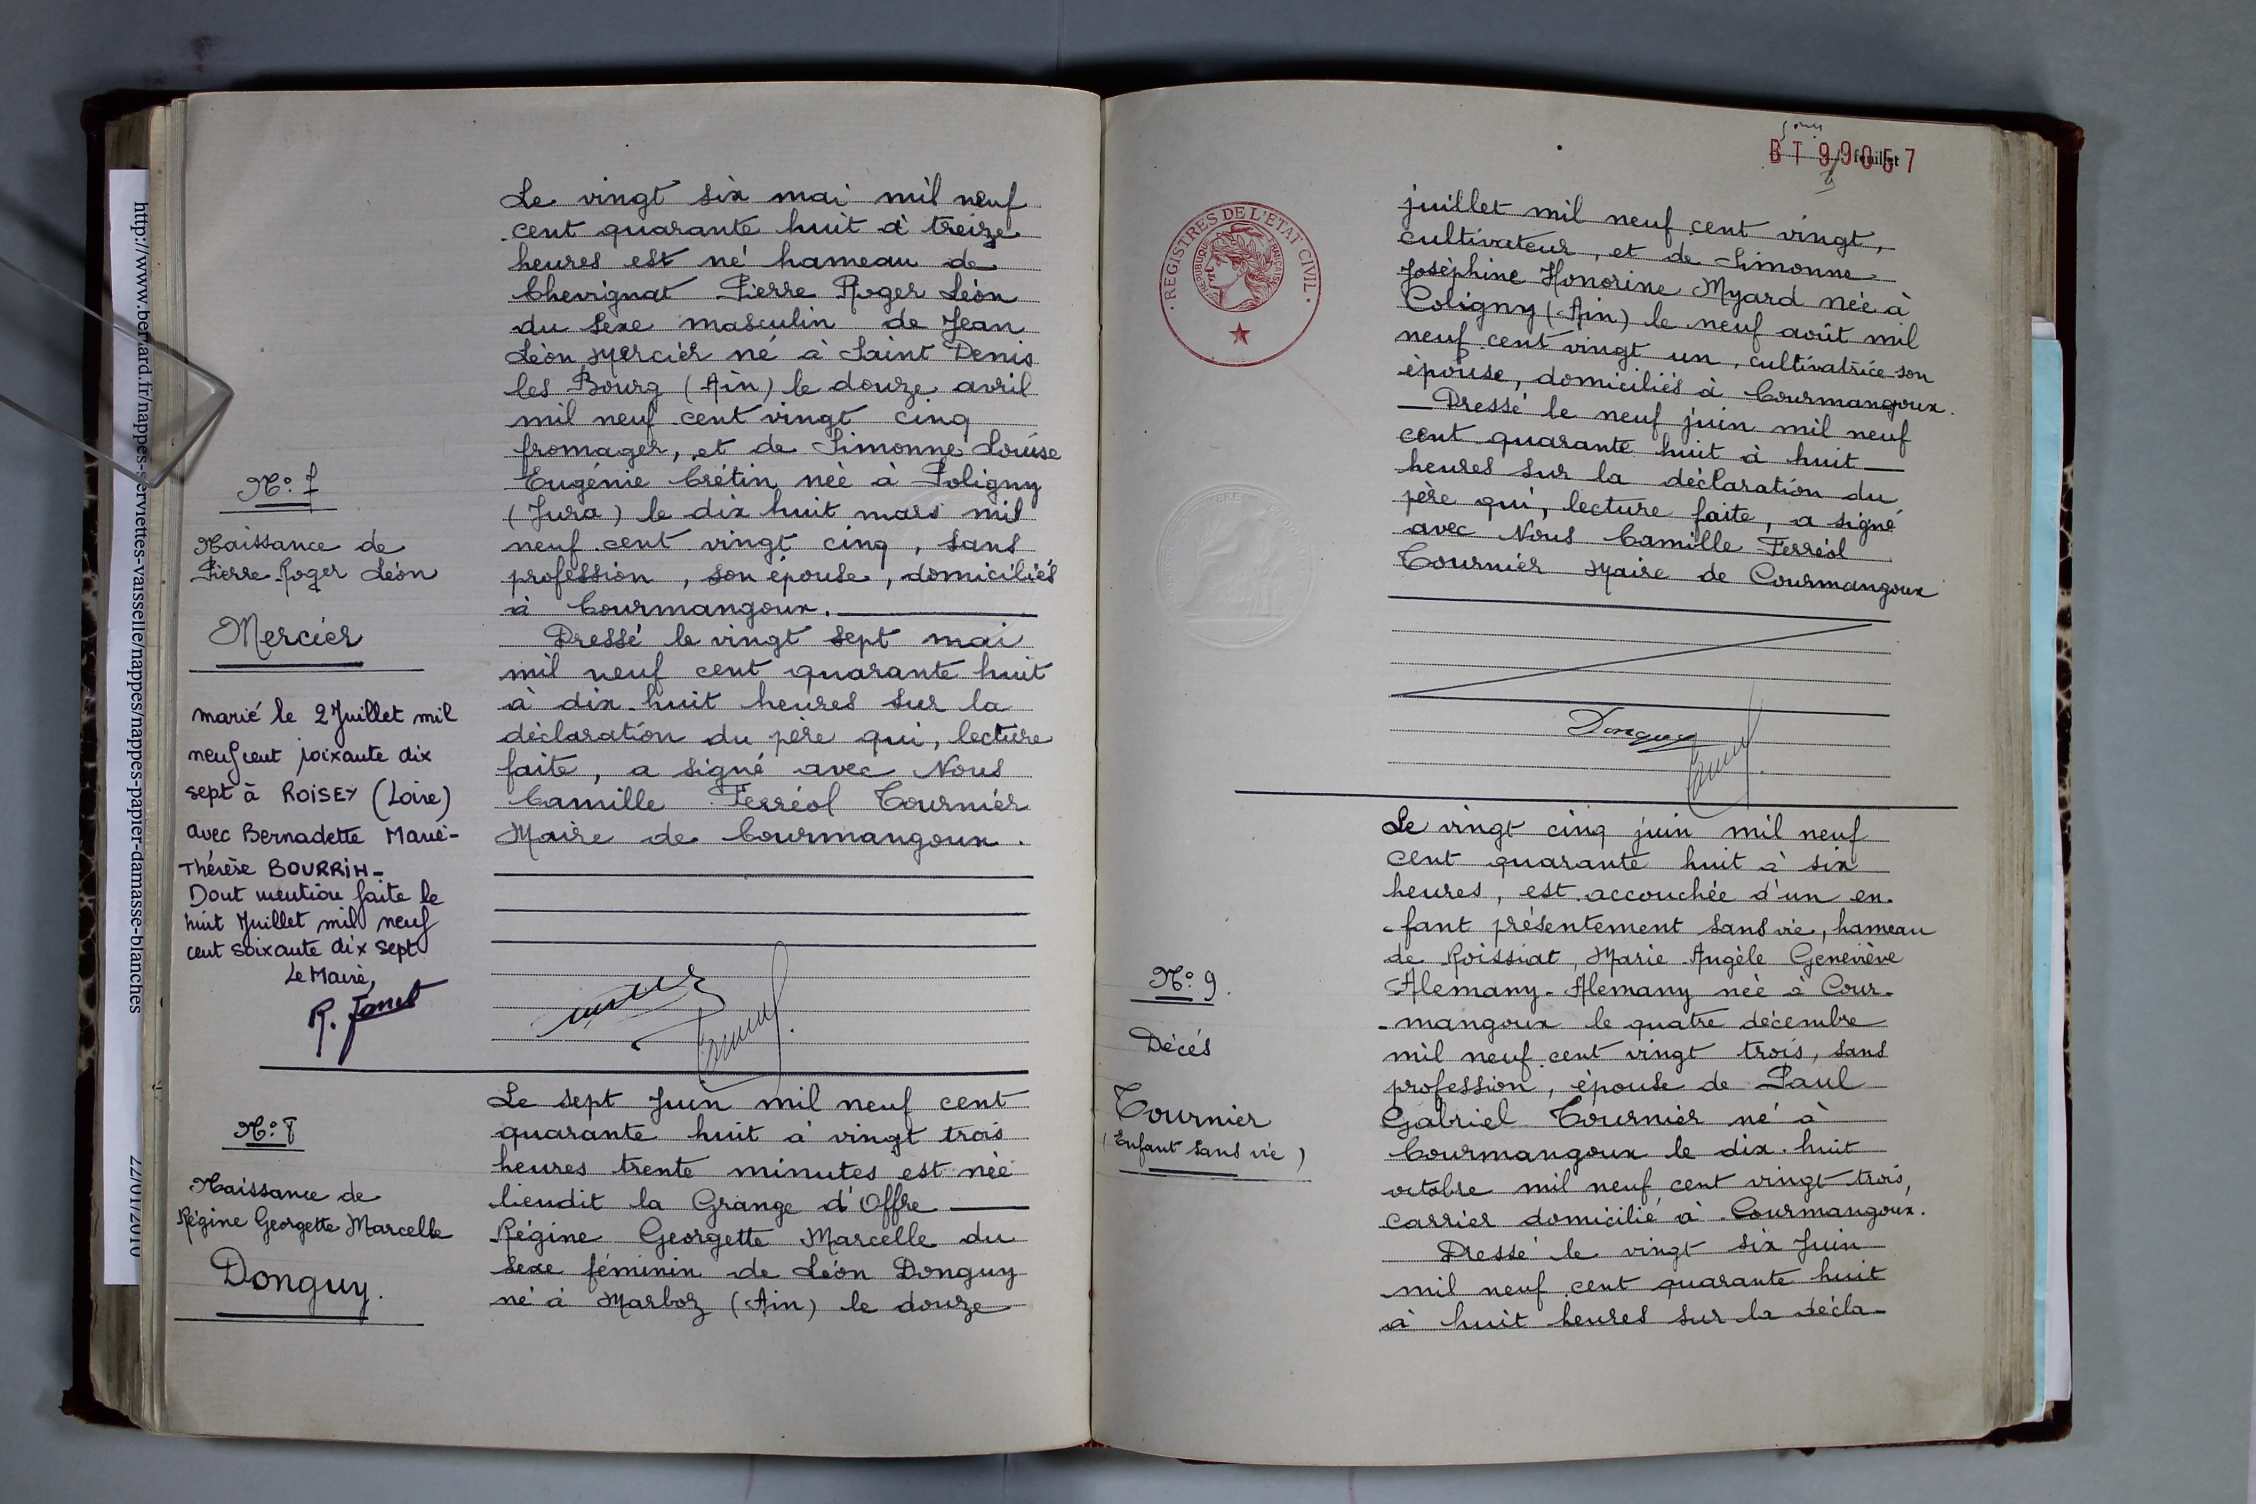 http://www.bernard.fr/nappes-serviettes-vaisselle/nappes/nappes-papier-damasse-blanches
22/01/2010
Le vingt six mai mil neuf
cent quarante huit à treize
heures est né hameau de
Chevignat Pierre Roger Léon
du sexe masculin de Jean
Léon Mercier né à Saint Denis
les Bourg (Ain) le douze avril
mil neuf cent vingt cinq
fromager, et de Simonne Louise
Eugénie Crétin née à Poligny
(Jura) le dix huit mars mil
neuf cent vingt cinq, sans
profession, son épouse, domiciliés
à Courmangoux.
Dressé le vingt sept mai
mil neuf cent quarante huit
à dix huit heures sur la
déclaration du père qui, lecture
faite, a signé avec Nous
Camille Ferréol Tournier
Maire de Courmangoux.
N° 7
Naissance de
Pierre Roger Léon
Mercier
marié le 2 Juillet mil
neuf cent soixante dix
sept à ROISEY (Loire)
avec Bernadette Marie-
Thérèse BOURRIN-
Dont mention faite le
huit Juillet mil neuf
cent soixante dix sept
Le Maire,
R. Janet
N° 8
Naissance de
Régine Georgette Marcelle
Donguy.
Le sept Juin mil neuf cent
quarante huit à vingt trois
heures trente minutes est née
lieudit la Grange d'Offre
Régine Georgette Marcelle du
sexe féminin de Léon Donguy
né à Marboz (Ain) le douze
BT 99057
feuillet
REGISTRES DE L'ETAT CIVIL
REPUBLIQUE FRANÇAISE
juillet mil neuf cent vingt,
cultivateur, et de Simonne
Joséphine Honorine Myard née à
Coligny (Ain) le neuf août mil
neuf cent vingt un, cultivatrice son
épouse, domiciliés à Courmangoux.
Dressé le neuf juin mil neuf
cent quarante huit à huit
heures sur la déclaration du
père qui, lecture faite, a signé
avec Nous Camille Ferréol
Tournier Maire de Courmangoux
Donguy
N° 9.
Décés
Tournier
(Enfant sans vie)
Le vingt cinq juin mil neuf
cent quarante huit à six
heures, est accouchée d'un en-
-fant présentement sans vie, hameau
de Roissiat, Marie Angèle Geneviève
Alemany-Alemany née à Cour-
-mangoux le quatre décembre
mil neuf cent vingt trois, sans
profession, épouse de Paul
Gabriel Tournier né à
Courmangoux le dix-huit
octobre mil neuf cent vingt trois,
carrier domicilié à Courmangoux.
Dressé le vingt six Juin
mil neuf cent quarante huit
à huit heures sur la décla-